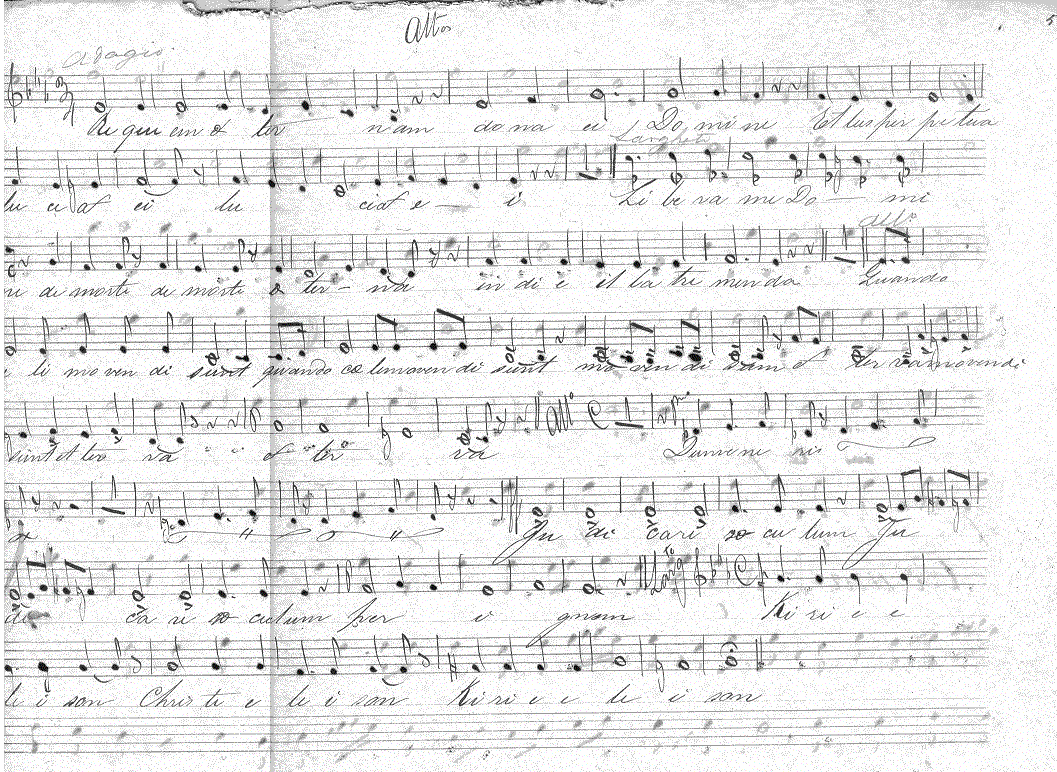 Altos
5
Adagio.
Re qui em e ter nam do na ei Do mi ne Et lus per pe tua
lu ci at ei lu ciat e — i Larghetto Li be ra me Do — mi
ne de morte de morte e ter - na in di e il la tre men da All.o Quando
e li mo ven di sunt quando ce li moven di sunt mo ven di sunt et ter ra moven di
sunt et ter ra et ter ra All.o Dum ve ne ris
Ju di care se cu lum Ju
di ca re se culum per i gnem Largo Ki ri e e
le i son Chris te e le i son Ki ri e e le i son